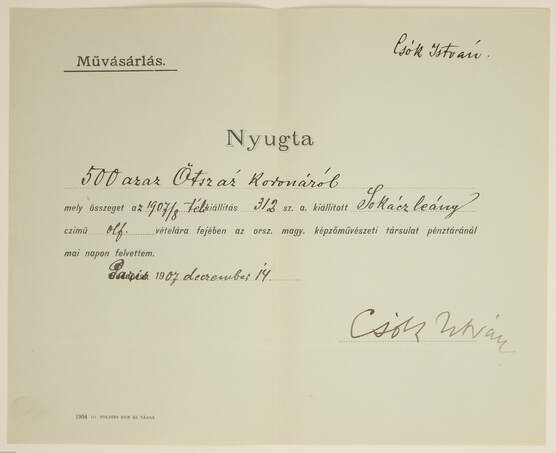 Művásárlás.
Csók István.
Nyugta
500 azaz Ötszáz koronáról
mely összeget az 1907/8 téli kiállitás 312 sz. a. kiállított Sokácz leány
czimű olf. vételára fejében az orsz. magy. képzőművészeti társulat pénztáránál
mai napon felvettem.
Paris 1907 deczember 14.
Csók István
1904